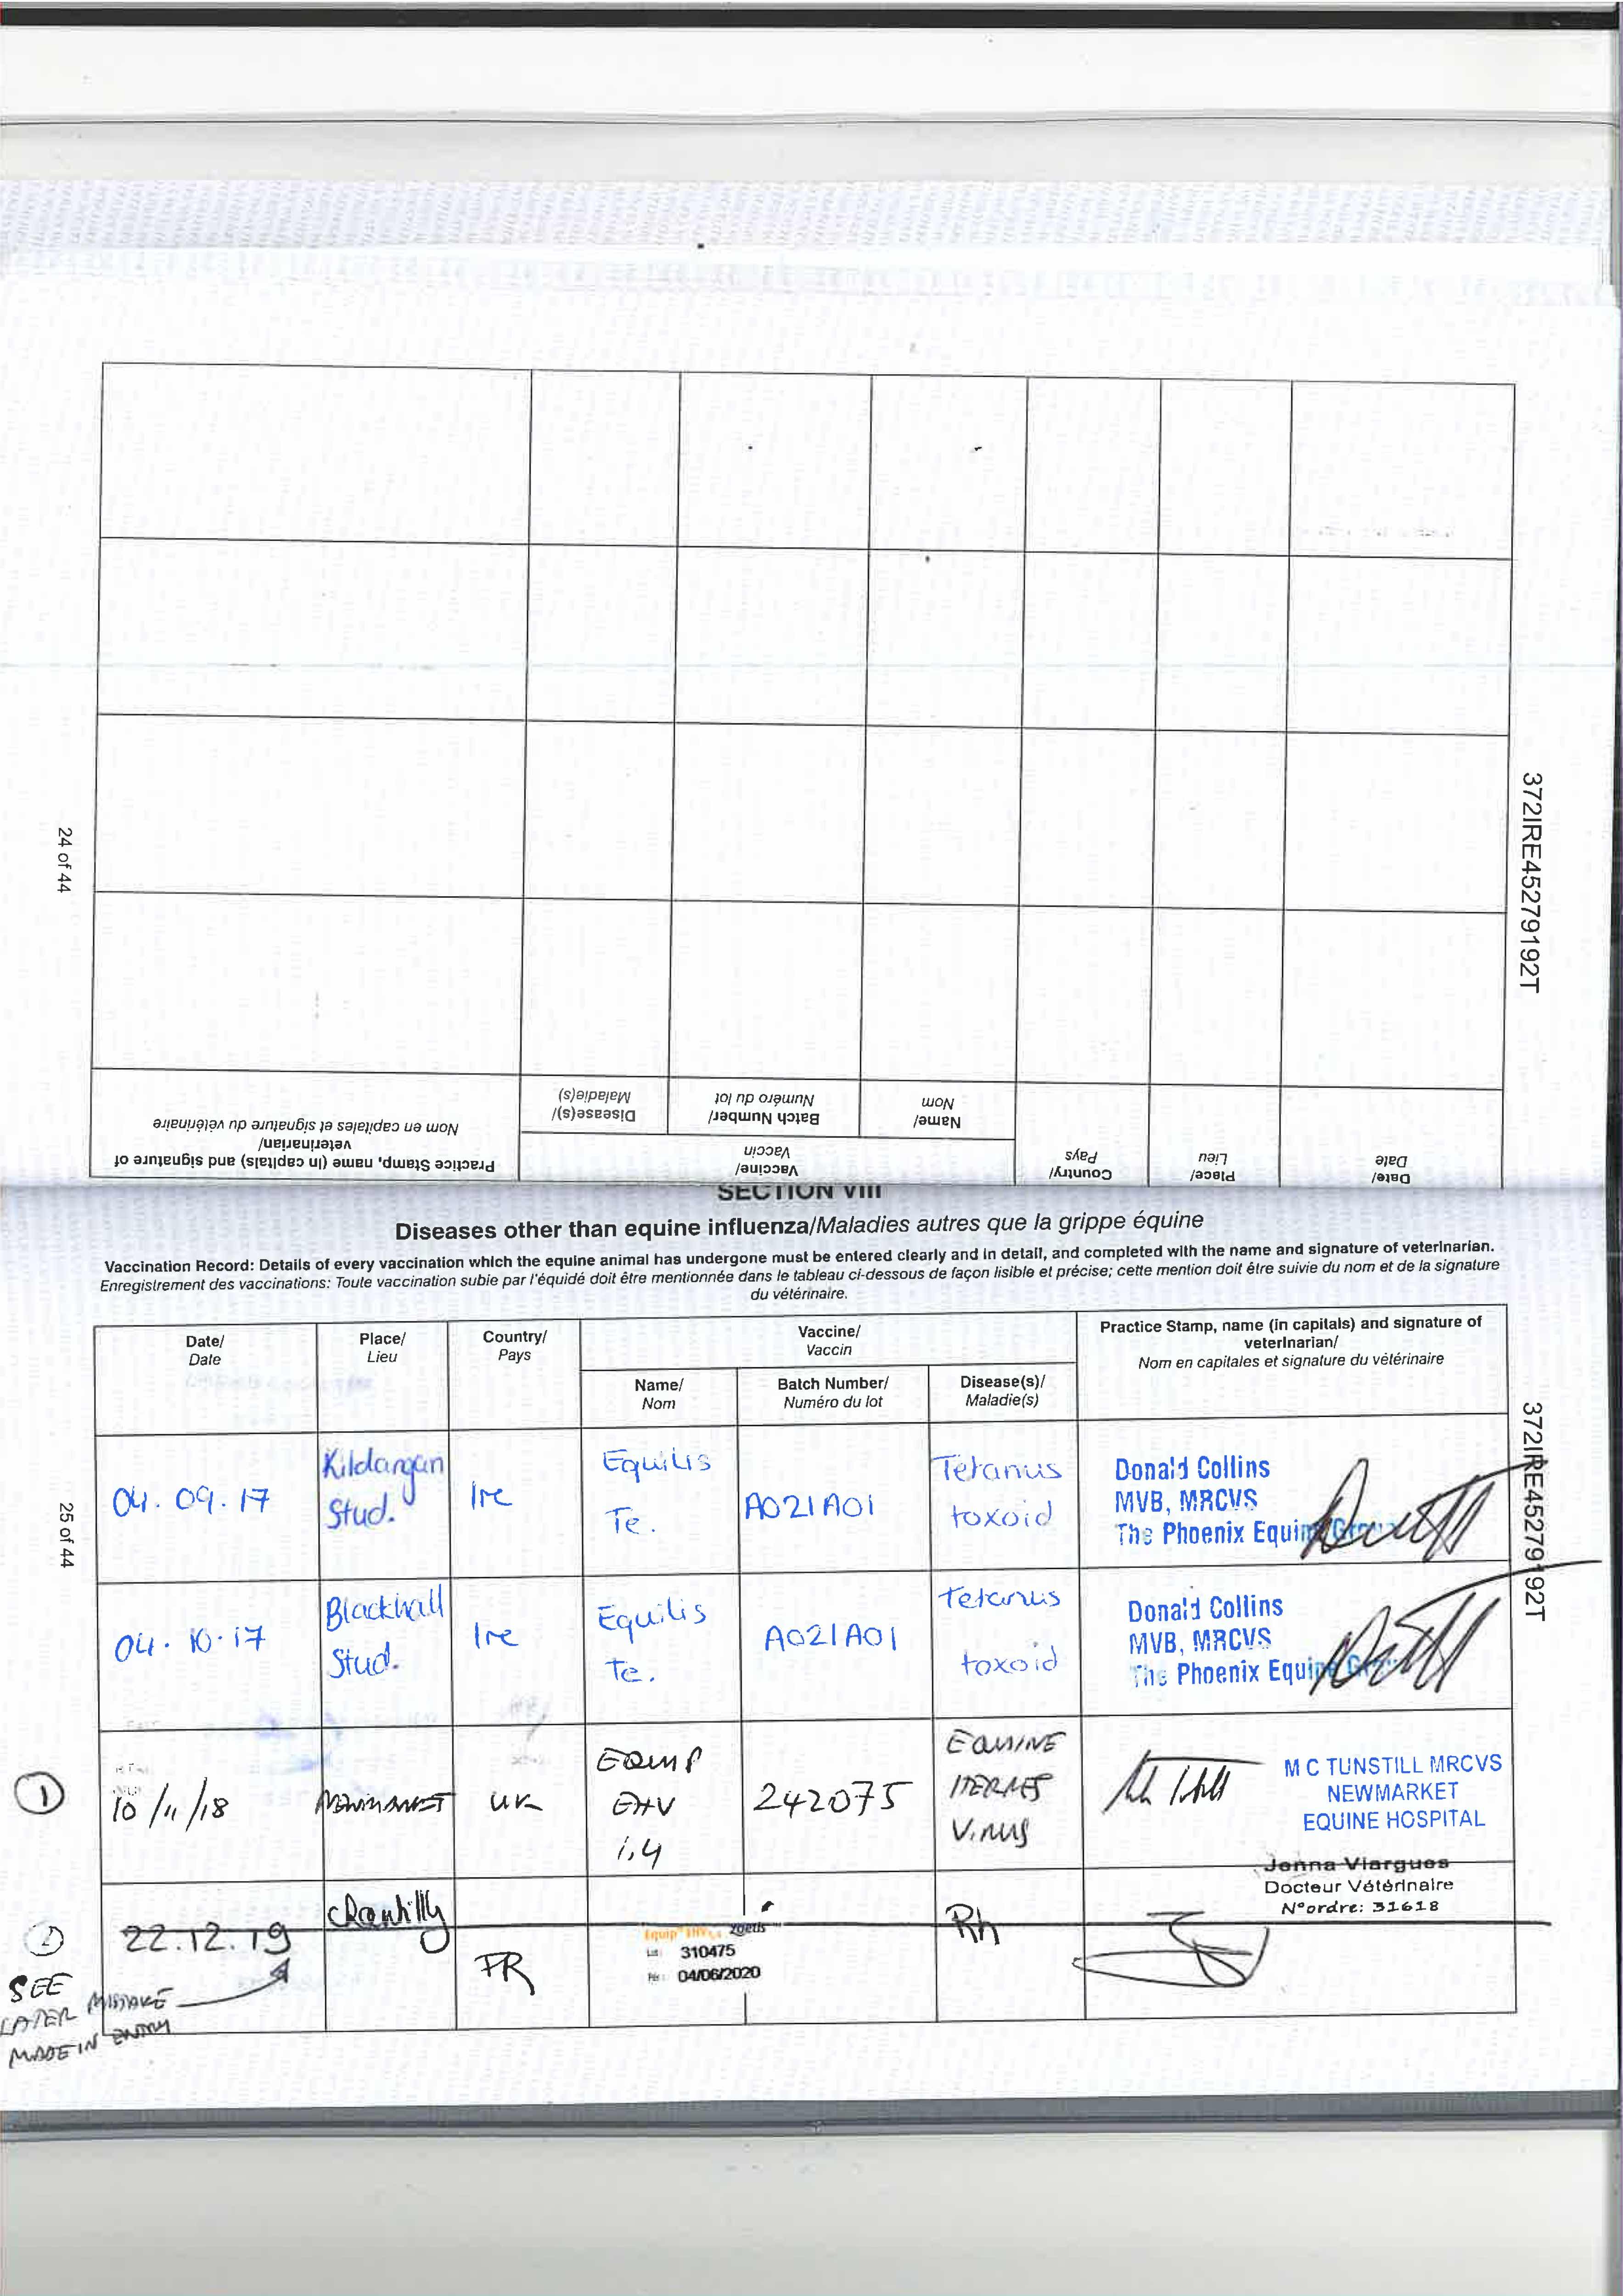 Practice Stamp, name (in capitals) and signature of
veterinarian/
Nom en capitales et signature du vétérinaire
Disease(s)/
Maladie(s)
Batch Number/
Numéro du lot
Name/
Nom
Vaccine/
Vaccin
Country/
Pays
Place/
Lieu
Date/
Date
24 of 44
372IRE45279192T
SECTION VIII
Diseases other than equine influenza/Maladies autres que la grippe équine
Vaccination Record: Details of every vaccination which the equine animal has undergone must be entered clearly and in detail, and completed with the name and signature of veterinarian.
Enregistrement des vaccinations: Toute vaccination subie par l'équidé doit être mentionnée dans le tableau ci-dessous de façon lisible et précise; cette mention doit être suivie du nom et de la signature
du vétérinaire.
Date/
Date
Place/
Lieu
Country/
Pays
Vaccine/
Vaccin
Name/
Nom
Batch Number/
Numéro du lot
Disease(s)/
Maladie(s)
Practice Stamp, name (in capitals) and signature of
veterinarian/
Nom en capitales et signature du vétérinaire
04.09.17
Kildangan
Stud.
Ire
Equilis
Te.
A021A01
Tetanus
toxoid
Donald Collins
MVB, MRCVS
The Phoenix Equine Group
04.10.17
Blackhall
Stud.
Ire
Equilis
Te.
A021A01
Tetanus
toxoid
Donald Collins
MVB, MRCVS
The Phoenix Equine Group
1
10/11/18
NEWMARKET
UK
EQUIP
EHV
1,4
242075
EQUINE
HERPES
VIRUS
M C TUNSTILL MRCVS
NEWMARKET
EQUINE HOSPITAL
2
22.12.19
Chantilly
FR
Equip EHV1,4 zoetis
Lot: 310475
Pér: 04/06/2020
Rh
Jenna Viargues
Docteur Vétérinaire
N°ordre: 31618
SEE
LATER MISTAKE
MADE IN ENTRY
25 of 44
372IRE45279192T